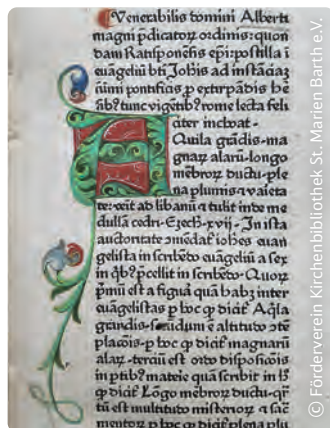 Venerabilis domini Alberti
magni p̄dicatoꝝ oꝛdinis: quon
dam Ratisponeñs ep̄i: postilla ī
euāgeliū bt̄i Joh̄is ad instāciāȝ
pontificis ꝓ extirpādis
ꝗb9 tunc vigētib9 rome lecta feli
citer incipit.
AQuila grādis ma
gnaꝝ alarū longo
mēbroꝝ ductu ple
na plumis ⁊ vaieta
te: ad libanū ⁊ tulit inde me
dullā cedri. Ezech. xvij. In ista
auctoꝛitate cōmēdat ioh̄es euan
gelista in scribēdo euāgeliū a sex
in ꝗb9 p̄cellit in scribēdo. Quoꝝ
pꝛimū est a figura quā habȝ inter
euāgelistas ꝓ hoc ꝙ dicit̄ Aq̄la
grandis. secūdum ē altitudo 
placōis. ꝑ hoc ꝙ dicit̄ magnarū
alaꝝ. terciū est oꝛdo disposicōis
in ptib9 mateie quā scribit in h̄
ꝙ dicit̄ Lōgo mēbroꝝ ductu. qr̄
tū est multitudo misterioꝝ ⁊ sac̄
mentoꝝ ꝑ hoc ꝙ dicit̄ plena plu
© Förderverein Kirchenbibliothek St. Marien Barthe e.V.